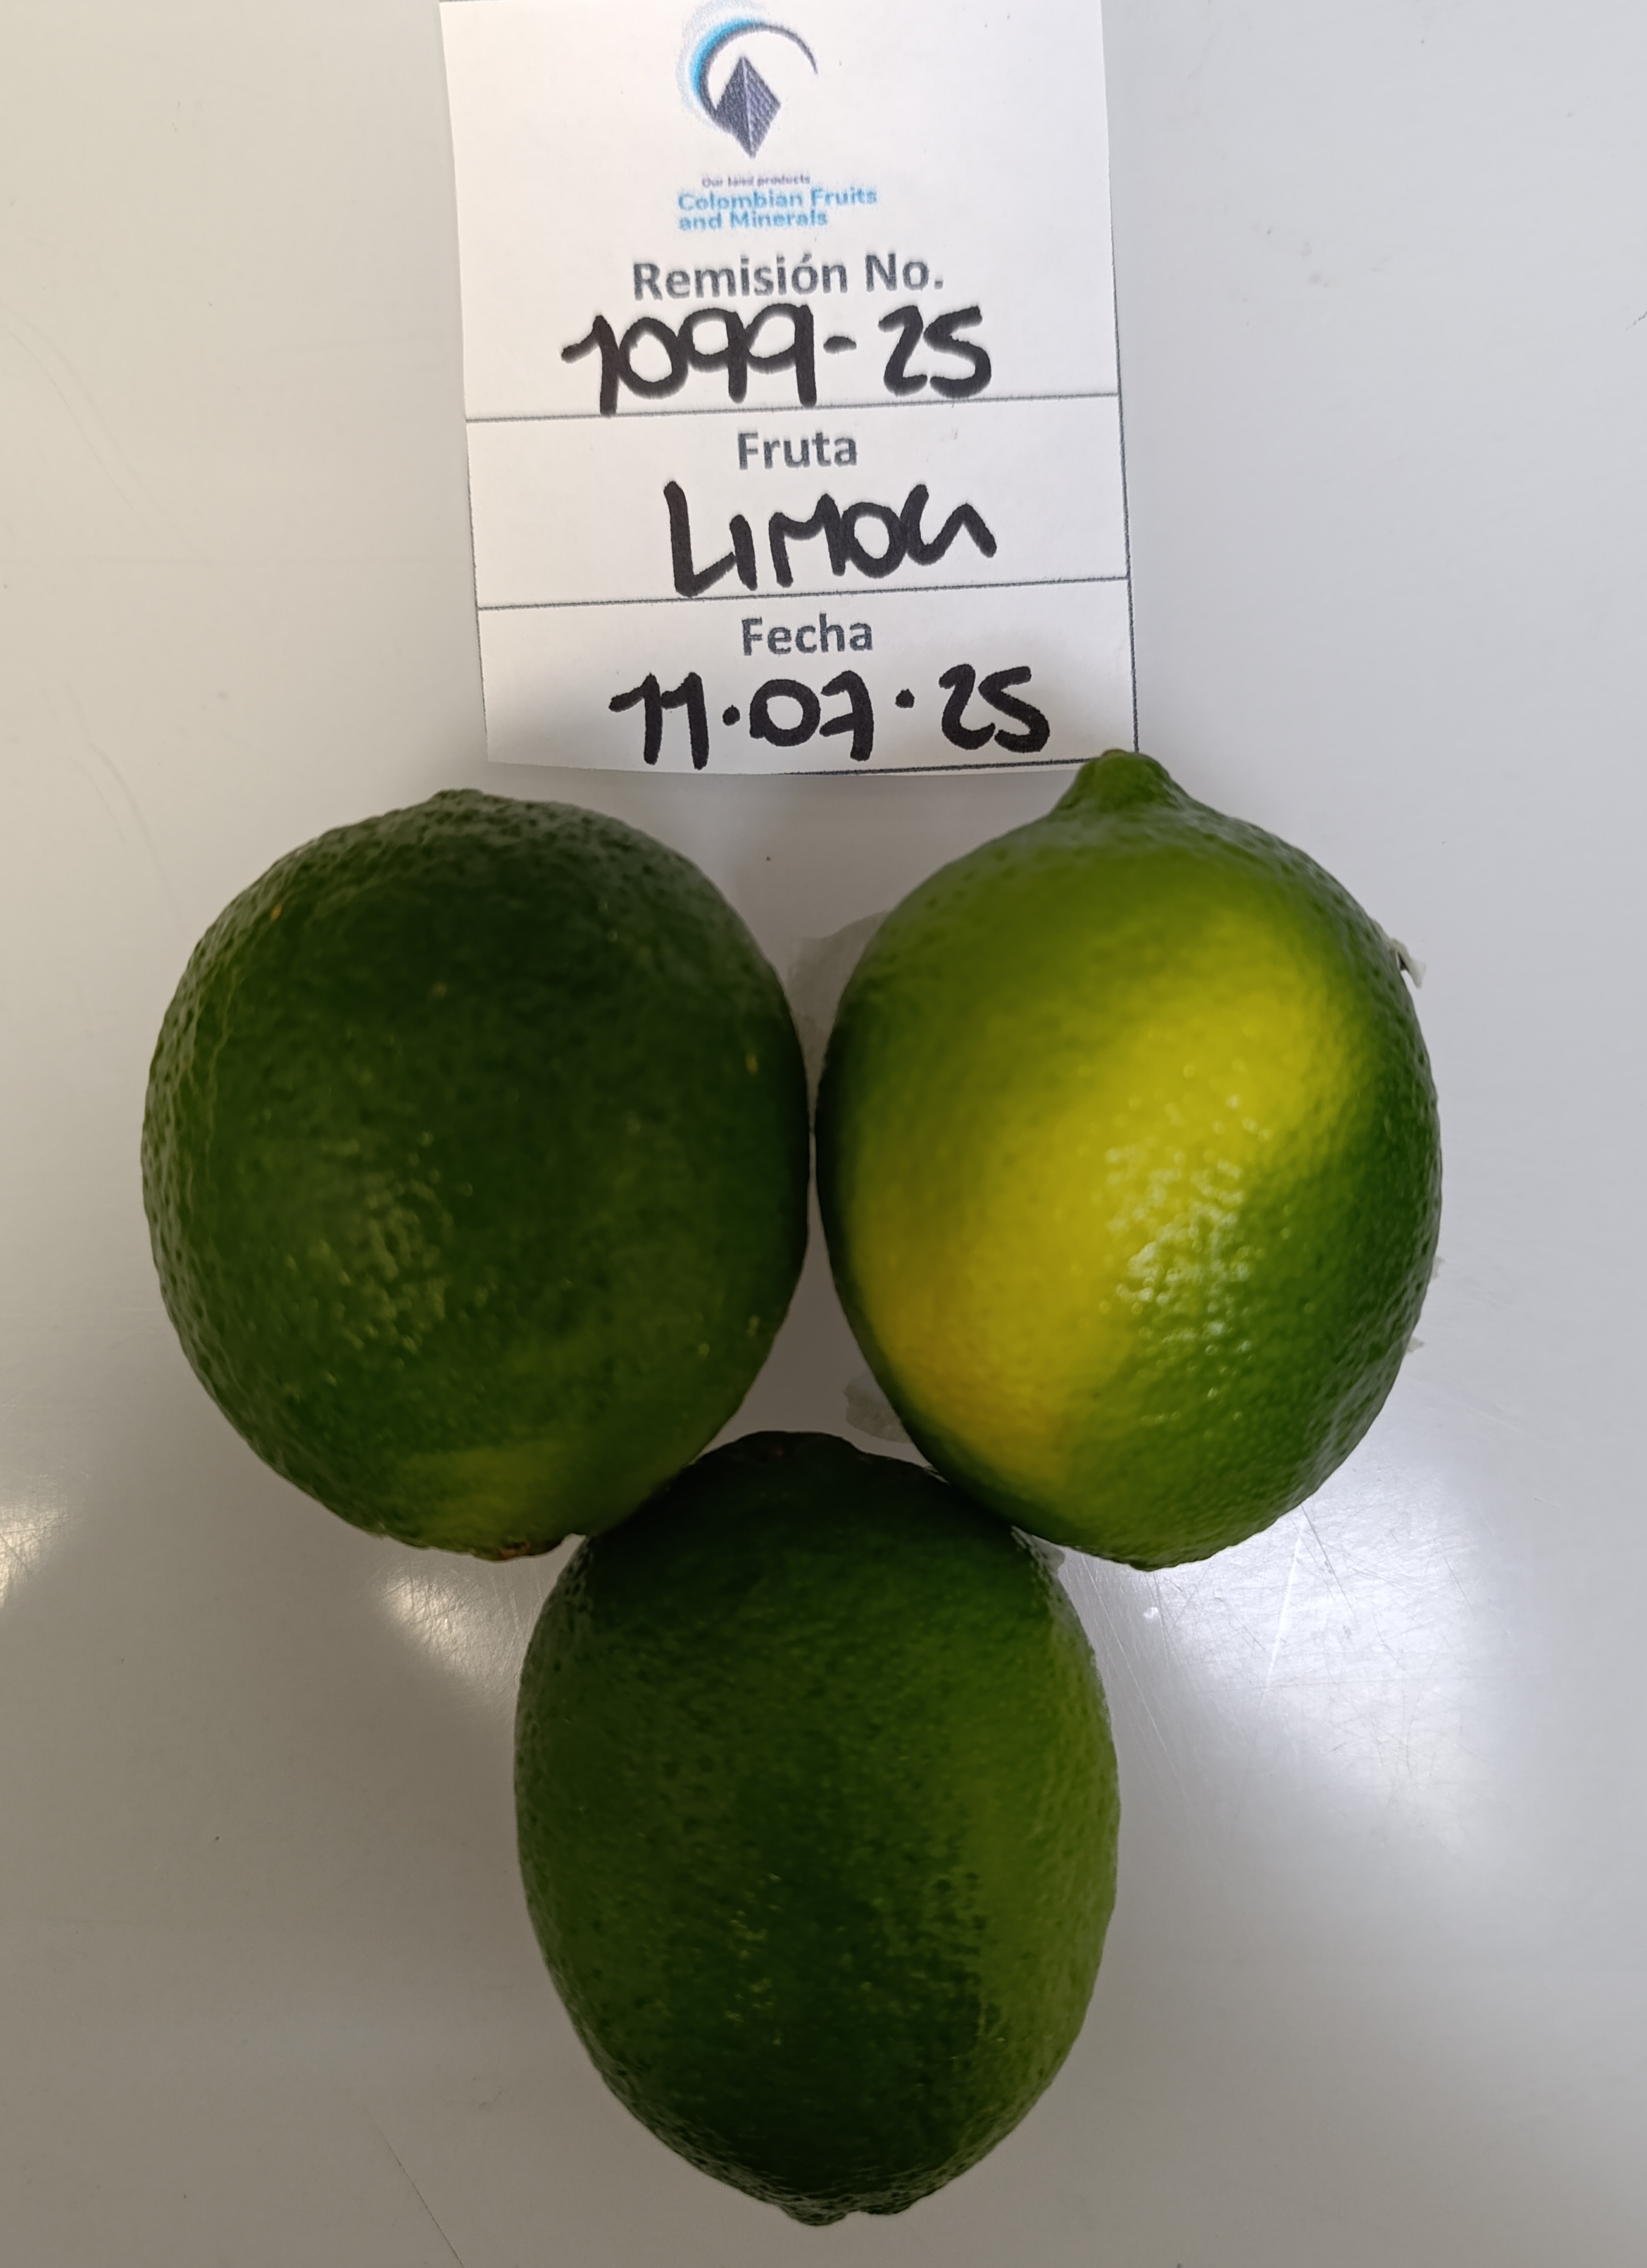 Our land products
Colombian Fruits
and Minerals
Remisión No.
1099-25
Fruta
LIMON
Fecha
11·07·25